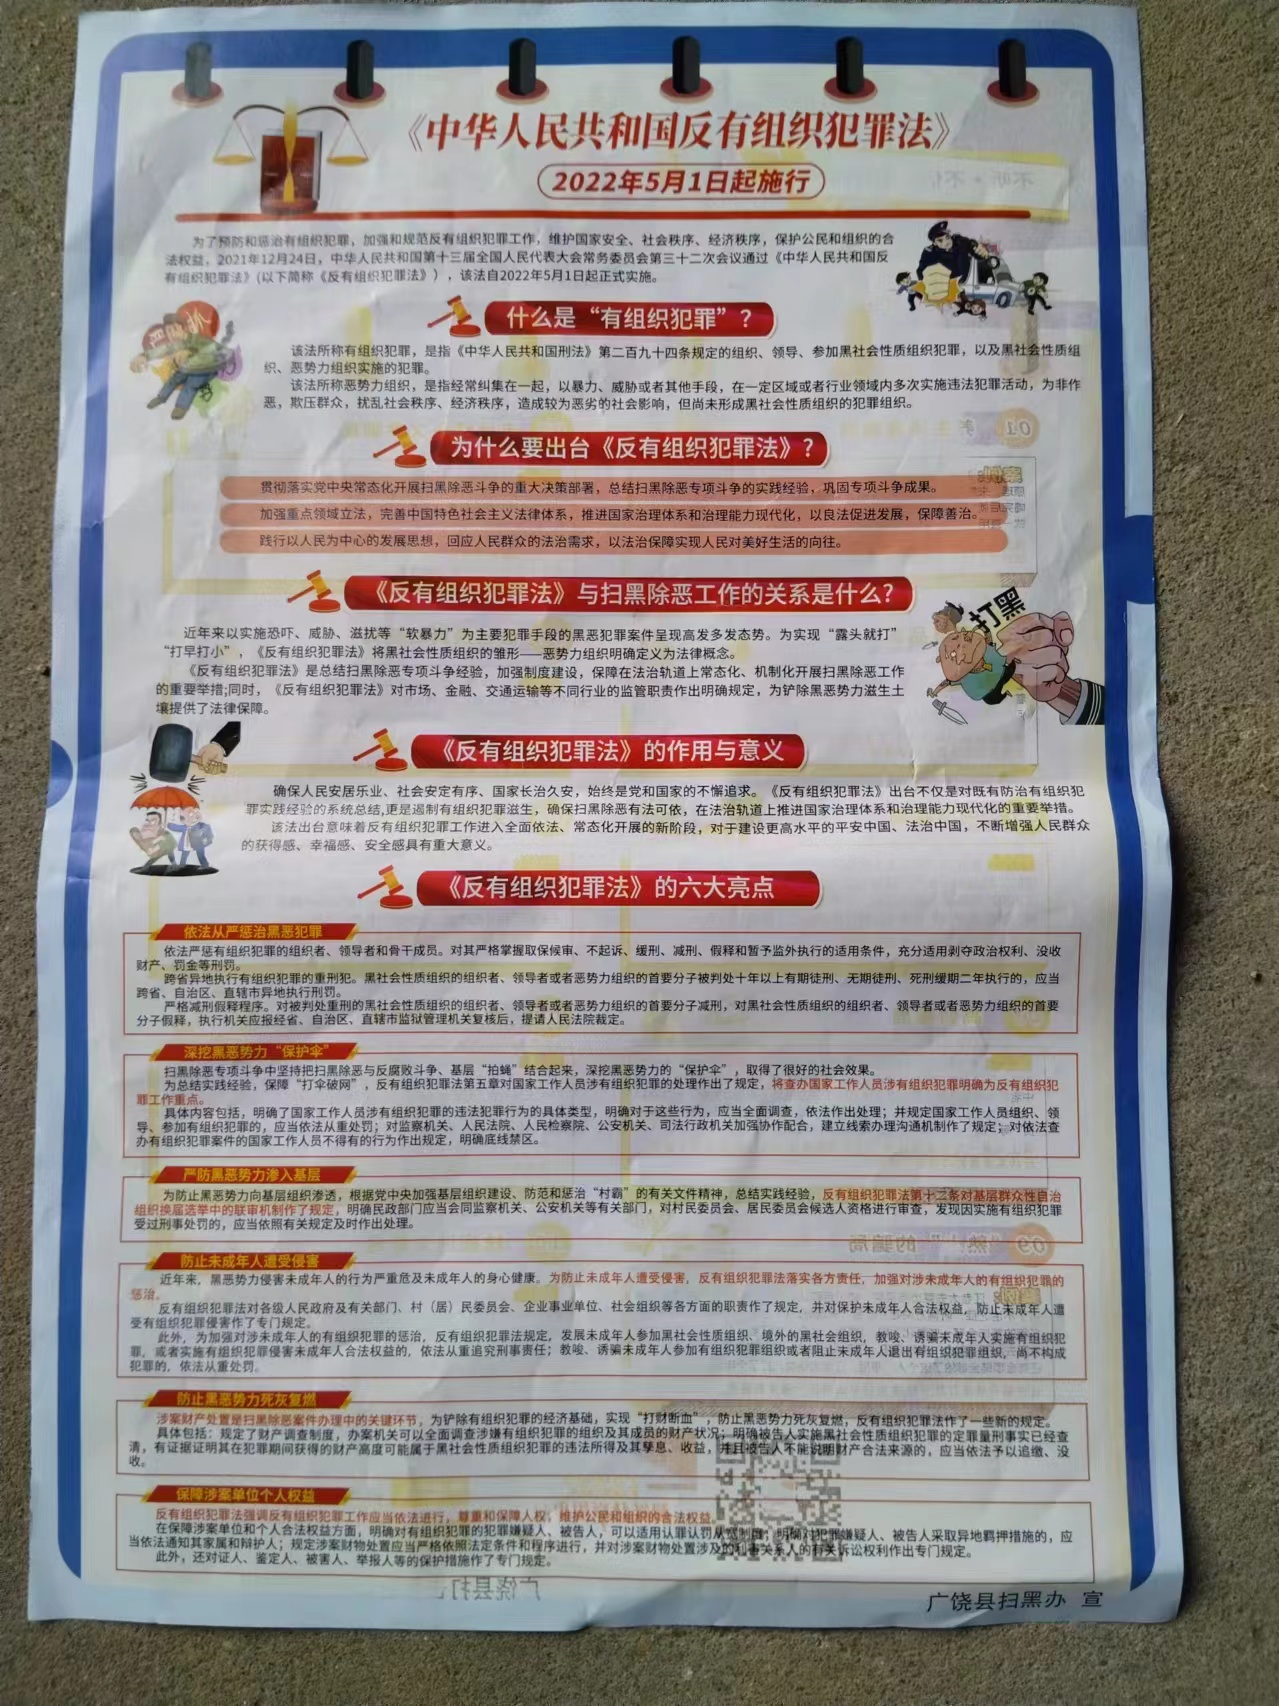 《中华人民共和国反有组织犯罪法》
2022年5月1日起施行
为了预防和惩治有组织犯罪，加强和规范反有组织犯罪工作，维护国家安全、社会秩序、经济秩序，保护公民和组织的合
法权益，2021年12月24日，中华人民共和国第十三届全国人民代表大会常务委员会第三十二次会议通过《中华人民共和国反
有组织犯罪法》(以下简称《反有组织犯罪法》），该法自2022年5月1日起正式实施。
什么是“有组织犯罪”？
该法所称有组织犯罪，是指《中华人民共和国刑法》第二百九十四条规定的组织、领导、参加黑社会性质组织犯罪，以及黑社会性质组
织、恶势力组织实施的犯罪。
该法所称恶势力组织，是指经常纠集在一起，以暴力、威胁或者其他手段，在一定区域或者行业领域内多次实施违法犯罪活动，为非作
恶，欺压群众，扰乱社会秩序、经济秩序，造成较为恶劣的社会影响，但尚未形成黑社会性质组织的犯罪组织。
为什么要出台《反有组织犯罪法》？
贯彻落实党中央常态化开展扫黑除恶斗争的重大决策部署，总结扫黑除恶专项斗争的实践经验，巩固专项斗争成果。
加强重点领域立法，完善中国特色社会主义法律体系，推进国家治理体系和治理能力现代化，以良法促进发展，保障善治。
践行以人民为中心的发展思想，回应人民群众的法治需求，以法治保障实现人民对美好生活的向往。
《反有组织犯罪法》与扫黑除恶工作的关系是什么？
打黑
近年来以实施恐吓、威胁、滋扰等“软暴力”为主要犯罪手段的黑恶犯罪案件呈现高发多发态势。为实现“露头就打”
“打早打小”，《反有组织犯罪法》将黑社会性质组织的雏形——恶势力组织明确定义为法律概念。
《反有组织犯罪法》是总结扫黑除恶专项斗争经验，加强制度建设，保障在法治轨道上常态化、机制化开展扫黑除恶工作
的重要举措;同时，《反有组织犯罪法》对市场、金融、交通运输等不同行业的监管职责作出明确规定，为铲除黑恶势力滋生土
壤提供了法律保障。
《反有组织犯罪法》的作用与意义
确保人民安居乐业、社会安定有序、国家长治久安，始终是党和国家的不懈追求。《反有组织犯罪法》出台不仅是对既有防治有组织犯
罪实践经验的系统总结,更是遏制有组织犯罪滋生，确保扫黑除恶有法可依，在法治轨道上推进国家治理体系和治理能力现代化的重要举措。
该法出台意味着反有组织犯罪工作进入全面依法、常态化开展的新阶段，对于建设更高水平的平安中国、法治中国，不断增强人民群众
的获得感、幸福感、安全感具有重大意义。
《反有组织犯罪法》的六大亮点
依法从严惩治黑恶犯罪
依法严惩有组织犯罪的组织者、领导者和骨干成员。对其严格掌握取保候审、不起诉、缓刑、减刑、假释和暂予监外执行的适用条件，充分适用剥夺政治权利、没收
财产、罚金等刑罚。
跨省异地执行有组织犯罪的重刑犯。黑社会性质组织的组织者、领导者或者恶势力组织的首要分子被判处十年以上有期徒刑、无期徒刑、死刑缓期二年执行的，应当
跨省、自治区、直辖市异地执行刑罚。
严格减刑假释程序。对被判处重刑的黑社会性质组织的组织者、领导者或者恶势力组织的首要分子减刑，对黑社会性质组织的组织者、领导者或者恶势力组织的首要
分子假释，执行机关应报经省、自治区、直辖市监狱管理机关复核后，提请人民法院裁定。
深挖黑恶势力“保护伞”
扫黑除恶专项斗争中坚持把扫黑除恶与反腐败斗争、基层“拍蝇”结合起来，深挖黑恶势力的“保护伞”，取得了很好的社会效果。
为总结实践经验，保障“打伞破网”，反有组织犯罪法第五章对国家工作人员涉有组织犯罪的处理作出了规定，将查办国家工作人员涉有组织犯罪明确为反有组织犯
罪工作重点。
具体内容包括，明确了国家工作人员涉有组织犯罪的违法犯罪行为的具体类型，明确对于这些行为，应当全面调查，依法作出处理；并规定国家工作人员组织、领
导、参加有组织犯罪的，应当依法从重处罚；对监察机关、人民法院、人民检察院、公安机关、司法行政机关加强协作配合，建立线索办理沟通机制作了规定；对依法查
办有组织犯罪案件的国家工作人员不得有的行为作出规定，明确底线禁区。
严防黑恶势力渗入基层
为防止黑恶势力向基层组织渗透，根据党中央加强基层组织建设、防范和惩治“村霸”的有关文件精神，总结实践经验，反有组织犯罪法第十二条对基层群众性自治
组织换届选举中的联审机制作了规定，明确民政部门应当会同监察机关、公安机关等有关部门，对村民委员会、居民委员会候选人资格进行审查，发现因实施有组织犯罪
受过刑事处罚的，应当依照有关规定及时作出处理。
防止未成年人遭受侵害
近年来，黑恶势力侵害未成年人的行为严重危及未成年人的身心健康。为防止未成年人遭受侵害，反有组织犯罪法落实各方责任，加强对涉未成年人的有组织犯罪的
惩治。
反有组织犯罪法对各级人民政府及有关部门、村（居）民委员会、企业事业单位、社会组织等各方面的职责作了规定，并对保护未成年人合法权益，防止未成年人遭
受有组织犯罪侵害作了专门规定。
此外，为加强对涉未成年人的有组织犯罪的惩治，反有组织犯罪法规定，发展未成年人参加黑社会性质组织、境外的黑社会组织，教唆、诱骗未成年人实施有组织犯
罪，或者实施有组织犯罪侵害未成年人合法权益的，依法从重追究刑事责任；教唆、诱骗未成年人参加有组织犯罪组织或者阻止未成年人退出有组织犯罪组织，尚不构成
犯罪的，依法从重处罚。
防止黑恶势力死灰复燃
涉案财产处置是扫黑除恶案件办理中的关键环节，为铲除有组织犯罪的经济基础，实现“打财断血”，防止黑恶势力死灰复燃，反有组织犯罪法作了一些新的规定。
具体包括：规定了财产调查制度，办案机关可以全面调查涉嫌有组织犯罪的组织及其成员的财产状况；明确被告人实施黑社会性质组织犯罪的定罪量刑事实已经查
清，有证据证明其在犯罪期间获得的财产高度可能属于黑社会性质组织犯罪的违法所得及其孳息、收益，并且被告人不能说明财产合法来源的，应当依法予以追缴、没
收。
保障涉案单位个人权益
反有组织犯罪法强调反有组织犯罪工作应当依法进行，尊重和保障人权，维护公民和组织的合法权益。
在保障涉案单位和个人合法权益方面，明确对有组织犯罪的犯罪嫌疑人、被告人，可以适用认罪认罚从宽制度；明确对犯罪嫌疑人、被告人采取异地羁押措施的，应
当依法通知其家属和辩护人；规定涉案财物处置应当严格依照法定条件和程序进行，并对涉案财物处置涉及的利害关系人的有关诉讼权利作出专门规定。
此外，还对证人、鉴定人、被害人、举报人等的保护措施作了专门规定。
广饶县扫黑办 宣